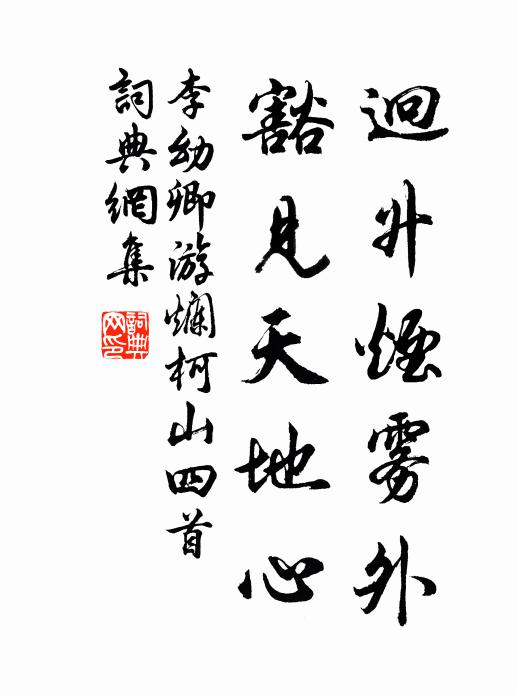 迥升煙雾外
豁見天地心
李幼卿游爛柯山四首
詞典網集
詞典網印